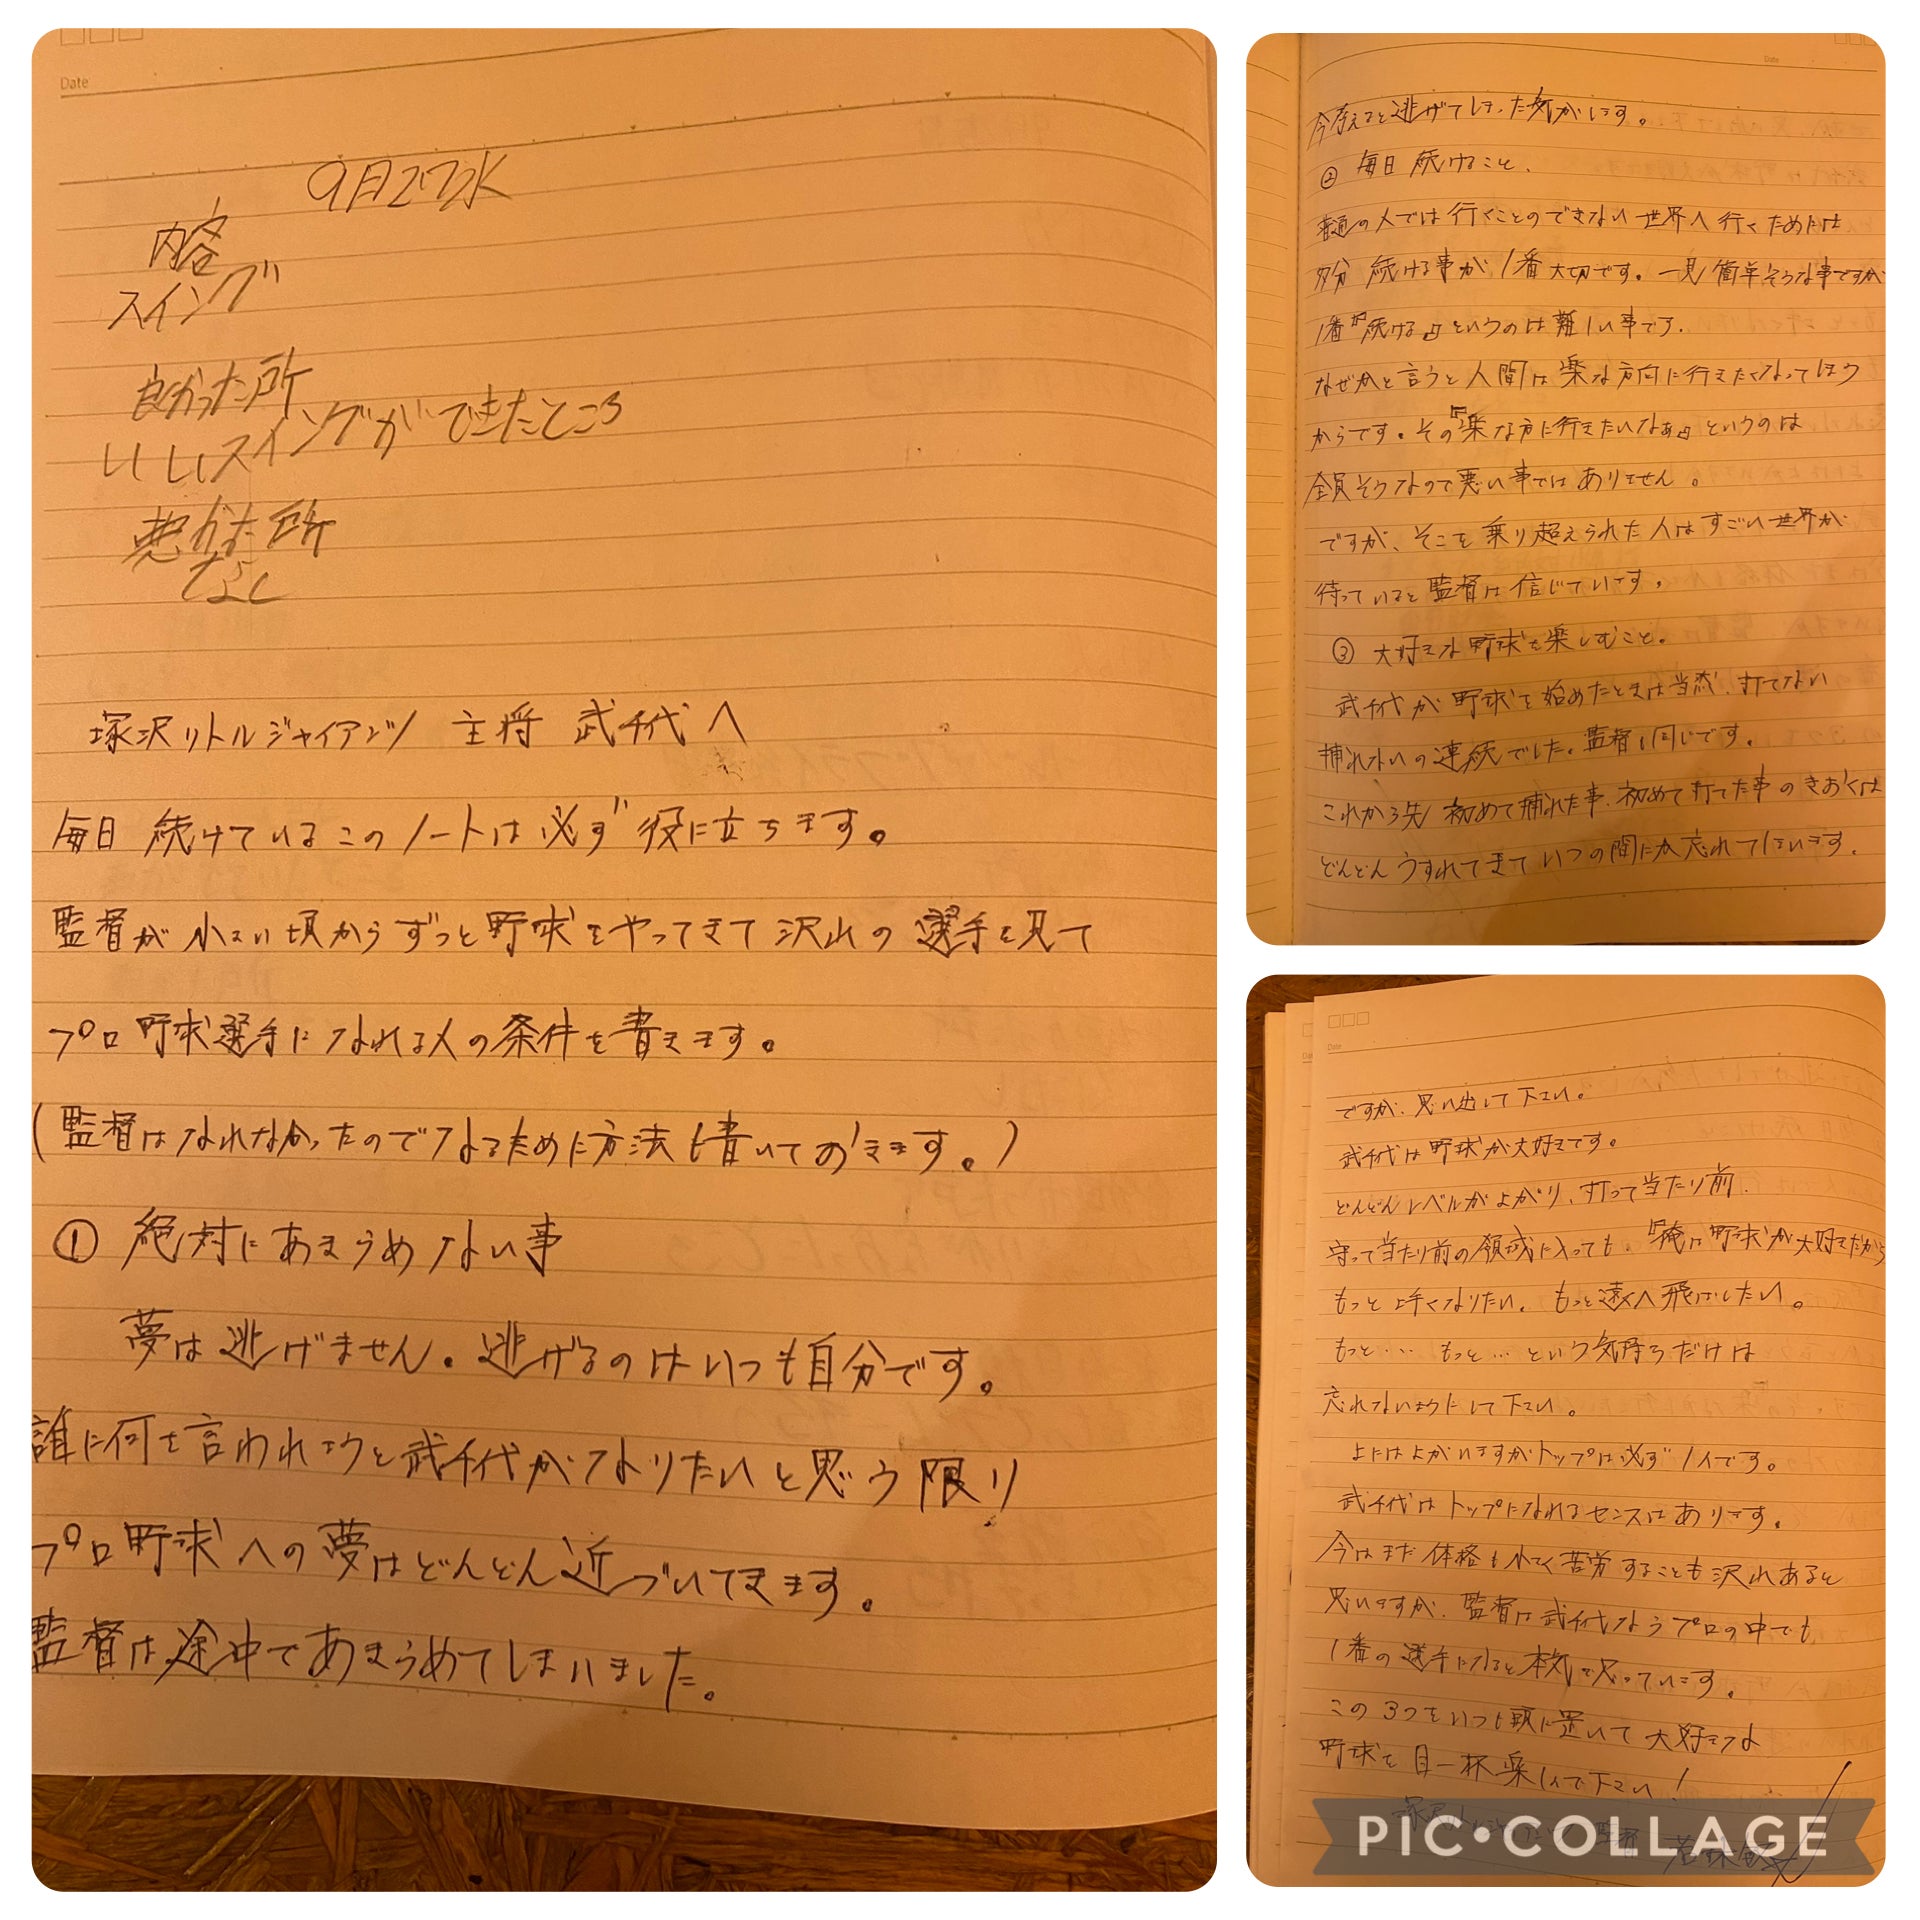 Date
9月27水
内容
スイング
良かった所
いいスイングができたところ
悪かた所
なし
塚沢リトルジャイアンツ 主将 武千代へ
毎日 続けているこのノートは必ず役に立ちます。
監督が小さい頃からずっと野球をやってきて沢山の選手を見て
プロ野球選手になれる人の条件を書きます。
(監督はなれなかったのでなるために方法も書いておきます。)
① 絶対にあきらめない事
夢は逃げません。逃げるのはいつも自分です。
誰に何を言われようと武千代がなりたいと思う限り
プロ野球への夢はどんどん近づいてきます。
監督は途中であきらめてしまいました。
Date
今考えると逃げてしまった気がします。
② 毎日続けること.
普通の人では行くことのできない世界へ行くためには
多分 続ける事が1番大切です。一見簡単そうな事ですが
1番『続ける』というのは難しい事です.
なぜかと言うと人間は楽な方向に行きたくなってしまう
からです。その『楽な方に行きたいなぁ』というのは
全員そうなので悪い事ではありません。
ですが、そこを乗り超えられた人はすごい世界が
待っていると監督は信じています。
③ 大好きな野球を楽しむこと。
武千代が野球を始めたときは当然、打てない
捕れないの連続でした。監督も同じです。
これから先 初めて捕れた事、初めて打てた事のきおくは
どんどんうすれてきていつの間にか忘れてしまいます.
Date
ですが、思い出して下さい。
武千代は野球が大好きです。
どんどんレベルが上がり、打って当たり前.
守って当たり前の領域に入っても、『俺は野球が大好きだから
もっと上手くなりたい、もっと遠くへ飛ばしたい。
もっと… もっと…という気持ちだけは
忘れないようにして下さい。
上には上がいますがトップは必ず1人です。
武千代はトップになれるセンスはあります。
今はまだ体格も小さく苦労することも沢山あると
思いますが、監督は武千代ならプロの中でも
1番の選手になると本気で思っています。
この3つをいつも頭に置いて大好きな
野球を目一杯楽しんで下さい!
監督
PIC•COLLAGE